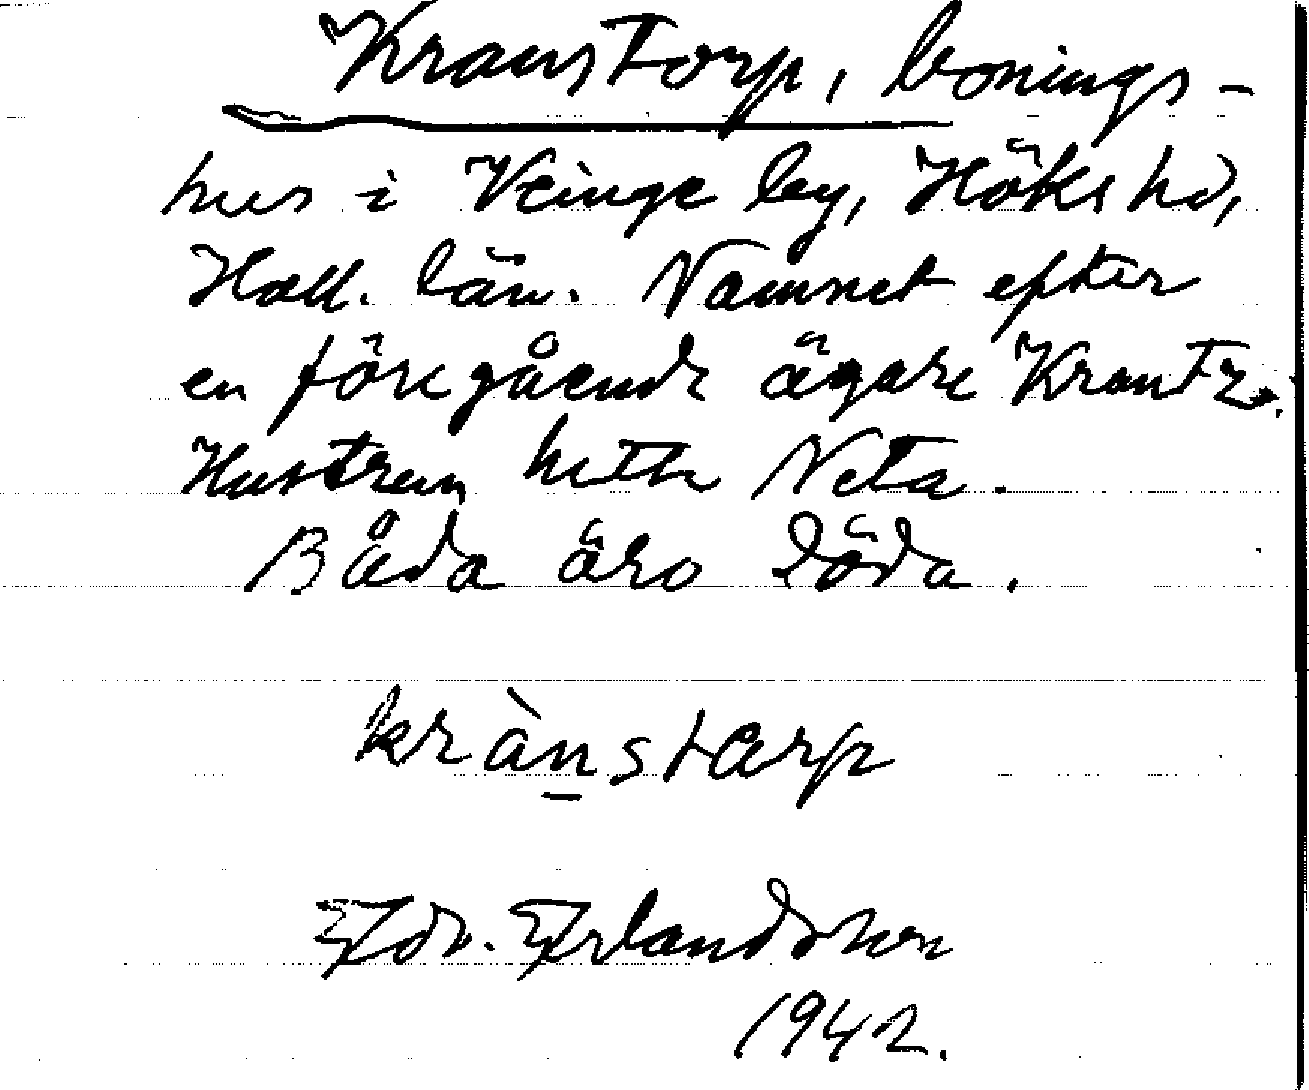 Kranstorp, bonings-
hus i Veinge by, Höks hd,
Hall. län. Namnet efter
en föregående ägare Krantz.
Hustrun hette Neta.
Båda äro döda.
kràn̲starp
Edv. Erlandsson
1942.